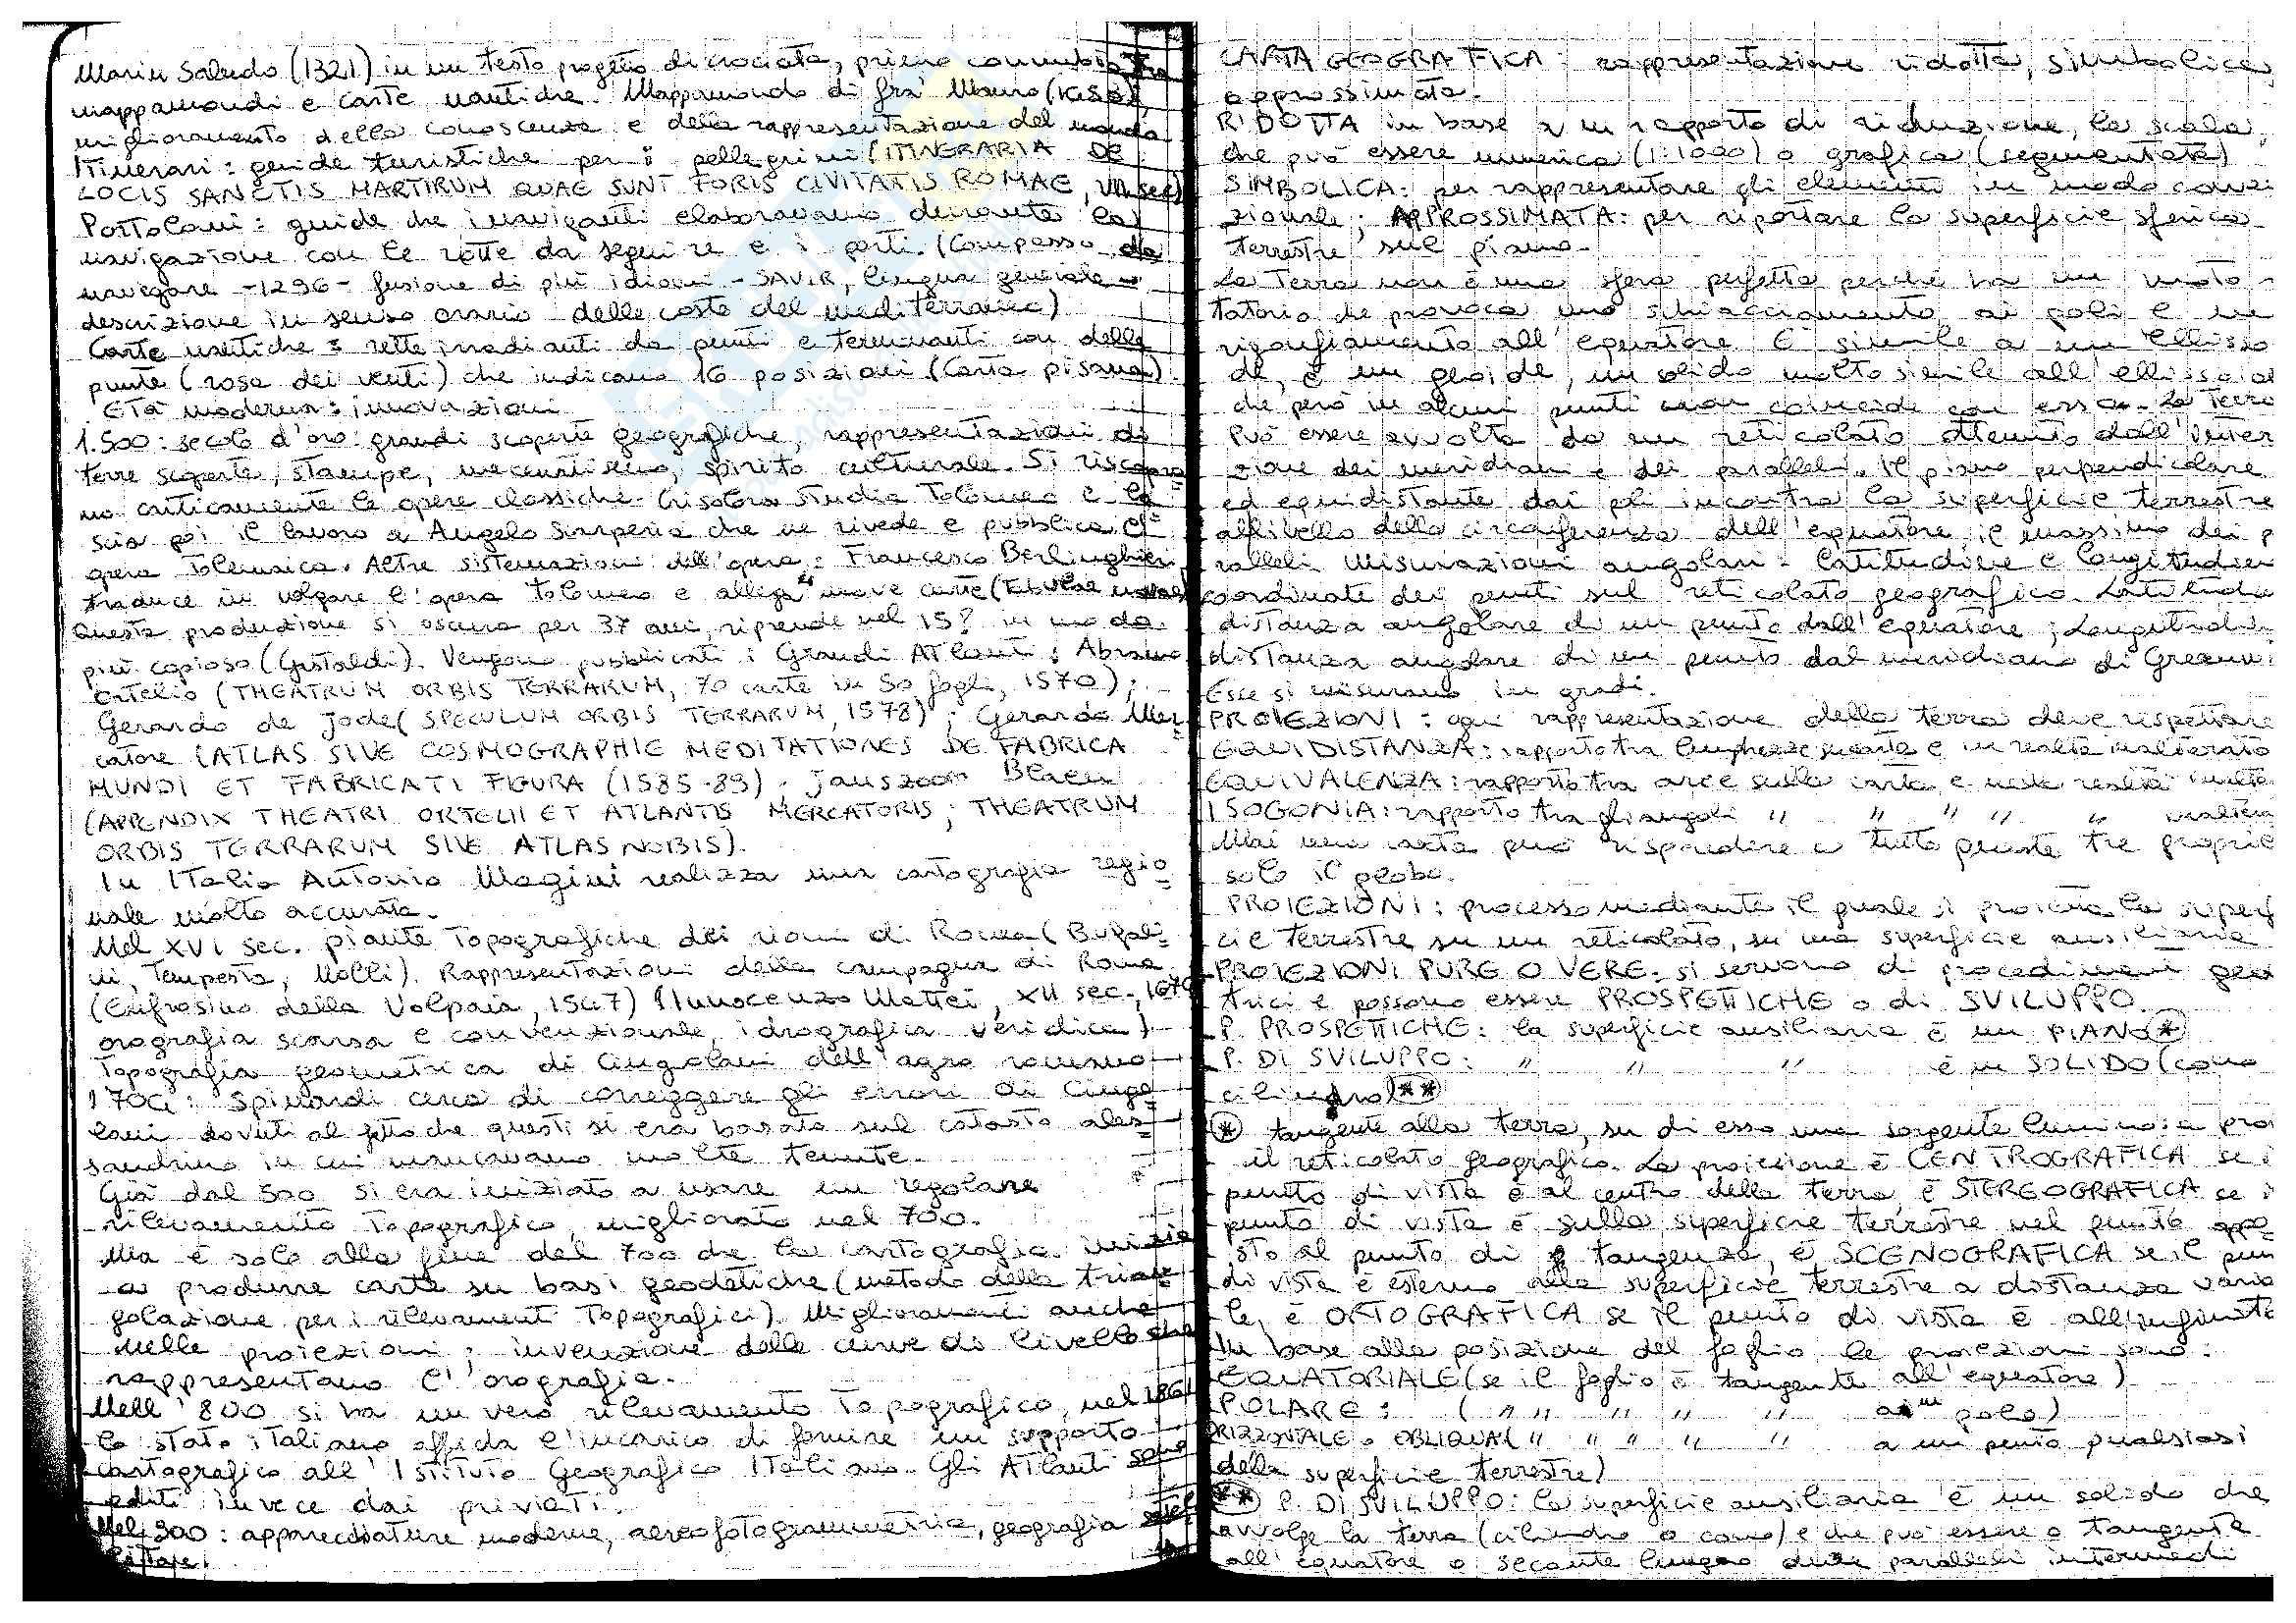 Marin Saludo (1321) in un testo progetto di crociata, primo connubio tra
mappamondi e carte nautiche. Mappamondo di fra' Mauro
miglioramento della conoscenza e della rappresentazione del mondo
Itinerari: guide turistiche per i pellegrini (ITINERARIA DE
LOCIS SANCTIS MARTIRUM QUAE SUNT FORIS CIVITATIS ROMAE, VII sec)
Portolani: guide che i naviganti elaboravano durante la
navigazione con le rotte da seguire e i porti. (Compasso da
navigare -1296- fusione di più idiomi - SAVIR, lingua geniale -
descrizione in senso orario delle coste del mediterraneo)
Carte nautiche: rette irradianti da punti e terminanti con delle
punte (rosa dei venti) che indicano 16 posizioni (Carta pisana).
Età moderna: innovazioni
1.500: secolo d'oro: grandi scoperte geografiche, rappresentazioni di
terre scoperte, stampe, mecenatismo, spirito culturale. Si riscopro=
no criticamente le opere classiche. Crisolora studia Tolomeo e la
scia poi il lavoro a Angelo Scarperia che ne rivede e pubblica l'=
opera Tolemaica. Altre sistemazioni dell'opera: Francesco Berlinghieri
traduce in volgare l'opera tolomeo e allega nuove carte (tabulae novae)
Questa produzione si oscura per 37 anni, riprende nel 15? in modo
più copioso (Gastaldi). Vengono pubblicati i Grandi Atlanti: Abramo
Ortelio (THEATRUM ORBIS TERRARUM, 70 carte in 50 fogli, 1570);
Gerardo de Jode (SPECULUM ORBIS TERRARUM, 1578); Gerardo Mer=
catore (ATLAS SIVE COSMOGRAPHIE MEDITATIONES DE FABRICA
MUNDI ET FABRICATI FIGURA (1585-89). Janszoon Blaeu
(APPENDIX THEATRI ORTELII ET ATLANTIS MERCATORIS; THEATRUM
ORBIS TERRARUM SIVE ATLAS NOBIS).
In Italia Antonio Magini realizza una cartografia regio=
nale molto accurata.
Nel XVI sec. piante topografiche dei rioni di Roma (Bufali=
ni, Tempesta, Nolli). Rappresentazioni della campagna di Roma
(Eufrosino della Volpaia, 1547) (Innocenzo Mattei, XII sec.,
orografia scarsa e convenzionale, idrografica veridica)
Topografia geometrica di Cingolani dell'agro romano
170G: Spinardi cerca di correggere gli errori di Cingo=
lani dovuti al fatto che questi si era basato sul catasto ales=
sandrino in cui mancavano molte tenute.
Già dal 500 si era iniziato a usare un regolare
rilevamento topografico, migliorato nel 700.
Ma è solo alla fine del 700 che la cartografia inizia
a produrre carte su basi geodetiche (metodo della trian=
golazione per i rilevamenti topografici). Miglioramenti anche
nelle proiezioni; invenzione delle curve di livello che
rappresentano l'orografia.
Nell'800 si ha un vero rilevamento topografico, nel 1861
lo stato italiano affida l'incarico di fornire un supporto
cartografico all'Istituto Geografico Italiano. Gli Atlanti sono
editi invece dai privati.
Nel 900: apparecchiature moderne, aereofotogrammetria, geografia satel
litare.
CARTA GEOGRAFICA: rappresentazione ridotta, simbolica,
approssimata.
RIDOTTA in base a un rapporto di riduzione, la scala,
che può essere numerica (1:1000) o grafica (segmentata)
SIMBOLICA: per rappresentare gli elementi in modo conven
zionale; APPROSSIMATA: per riportare la superficie sferica
terrestre sul piano.
La Terra non è una sfera perfetta perché ha un moto
rotatorio che provoca uno schiacciamento ai poli e un
rigonfiamento all'equatore. È simile a un ellisso
de, è un geoide, un solido molto simile all'ellissoide
che però in alcuni punti non coincide con esso. La Terra
può essere avvolta da un reticolato ottenuto dall'inter
zione dei meridiani e dei paralleli. Il piano perpendicolare
ed equidistante dai poli incontra la superficie terrestre
all'livello della circonferenza dell'equatore, il massimo dei p
ralleli. Misurazioni angolari: latitudine e longitudine
coordinate dei punti sul reticolato geografico. Latitudine
distanza angolare di un punto dall'equatore; Longitudine
distanza angolare di un punto dal meridiano di Greenwi
Esse si misurano in gradi.
PROIEZIONI: ogni rappresentazione della terra deve rispettare
EQUIDISTANZA: rapporto tra lunghezze su carta e in realtà inalterato
EQUIVALENZA: rapporto tra aree sulla carta e nella realtà inalte
ISOGONIA: rapporto tra gli angoli " " " " " inaltera
Mai una carta può rispondere a tutte queste tre propriet
solo il globo.
PROIEZIONI: processo mediante il quale si proietta la superf
cie terrestre, su un reticolato, su una superficie ausiliaria
PROIEZIONI PURE O VERE: si servono di procedimenti geo
trici e possono essere PROSPETTICHE o di SVILUPPO.
P. PROSPETTICHE: la superficie ausiliaria è un PIANO *
P. DI SVILUPPO: " " " è un SOLIDO (cono
cilindro) **
* tangente alla terra, su di esso una sorgente luminosa pro
il reticolato geografico. La proiezione è CENTROGRAFICA se i
punto di vista è al centro della terra, è STEREOGRAFICA se i
punto di vista è sulla superficie terrestre nel punto oppo=
sto al punto di tangenza, è SCENOGRAFICA se il pun
di vista è esterno alla superficie terrestre a distanza varia
le, è ORTOGRAFICA se il punto di vista è all'infinito
In base alla posizione del foglio le proiezioni sono:
EQUATORIALE (se il foglio è tangente all'equatore)
POLARE: ( " " " " " al polo)
ORIZZONTALE o OBLIQUA ( " " " " " a un punto qualsiasi
della superficie terrestre)
** P. DI SVILUPPO: la superficie ausiliaria è un solido che
avvolge la terra (cilindro o cono) e che può essere o tangente
all'equatore o secante lungo due paralleli intermedi